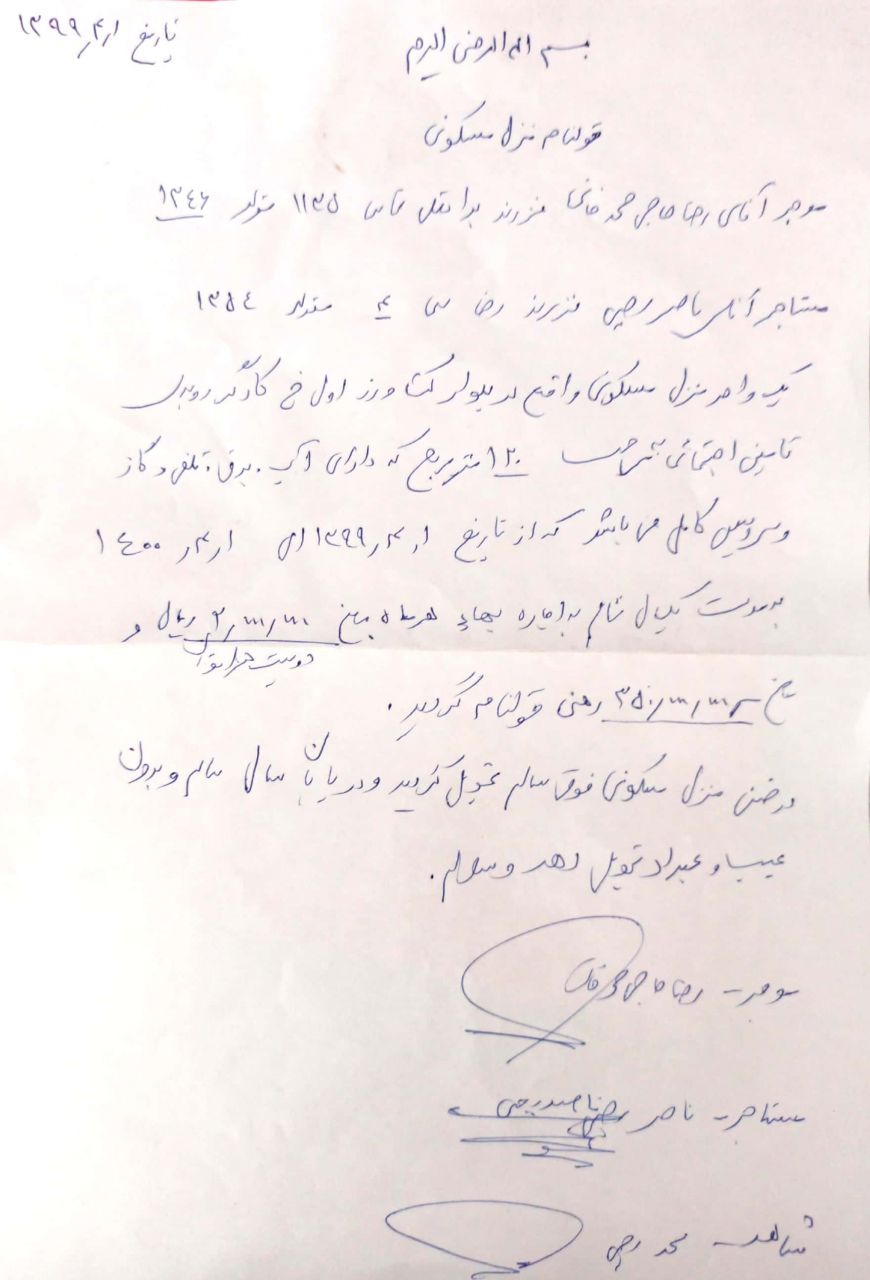 تاریخ ۱/۴/۱۳۹۹
بسم اله الرحمن الرحیم
قولنامه منزل مسکونی
موجر آقای رضا حاجی محمد خانی فرزند ش ۱۱۳۵ متولد ۱۳۴۶
مستاجر آقای ناصر رجبی فرزند رضا ش ۴ متولد ۱۳۵۴
یک واحد منزل مسکونی واقع در بلوار کشاورز اول خ کارگر روبروی
تامین اجتماعی به مساحت ۱۲۰ متر مربع که دارای آب، برق، تلفن و گاز
و سرویس کامل می باشد که از تاریخ ۱/۴/۱۳۹۹ الی ۱/۴/۱۴۰۰
به مدت یکسال تمام به اجاره بهاء هر ماه مبلغ ۲/۰۰۰/۰۰۰ ریال و
دویست هزار تومان
مبلغ ۳۵۰/۰۰۰/۰۰۰ رهنی قولنامه گردید.
در ضمن منزل مسکونی فوق سالم تحویل گردید و در پایان سال سالم و بدون
عیب و ایراد تحویل دهد والسلام.
موجر - رضا حاجی محمد خانی
مستاجر - ناصر رجبی ناصر رجبی
شاهد - محمد رجبی